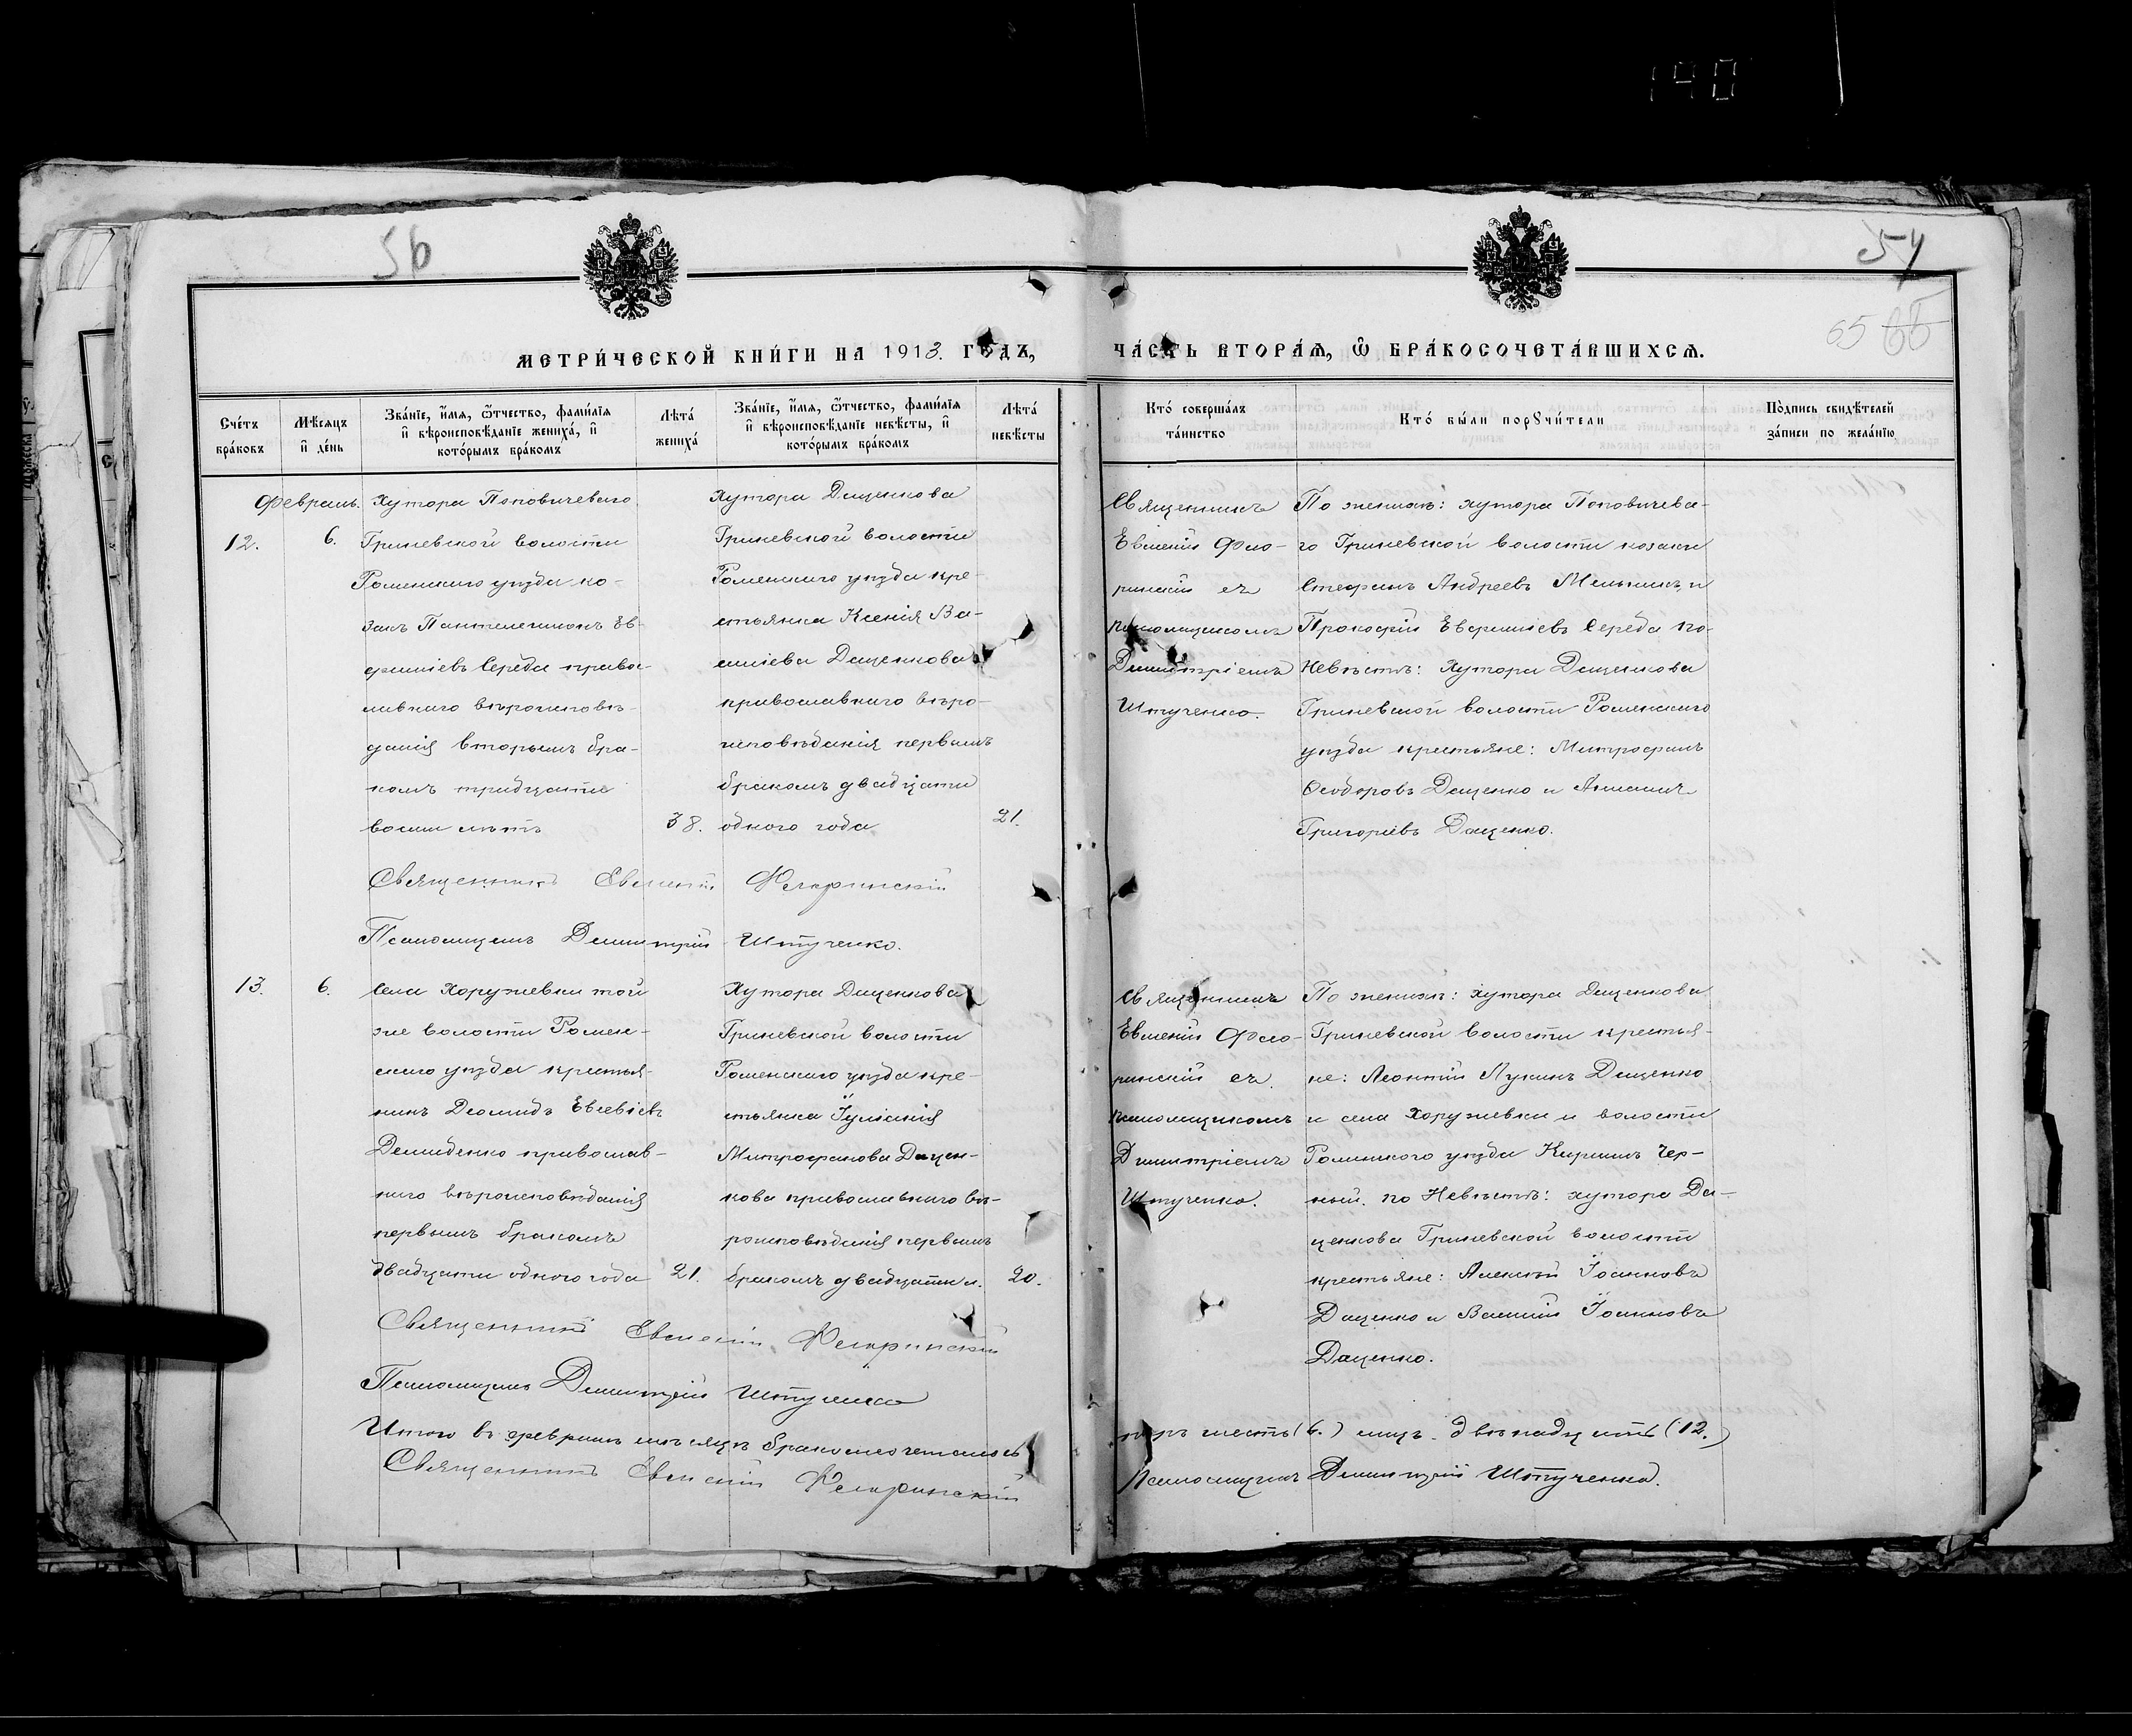 190
56
57
65 66
МЕТРИ́ЧЕСКОЙ КНИ́ГИ НА 1913. ГО́ДЪ,
ЧА́СТЬ ВТОРА́Ѧ, Ѽ БРА́КОСОЧЕТА́ВШИХСѦ.
Сче́тъ бра́ковъ
Мѣ́сяцъ и҆ де́нь
Зва́нїе, и҆́мѧ, ѻ҆́тчество, фами́лїѧ
и҆ вѣроисповѣ́данїе жениха́, и҆
кото́рымъ бра́комъ
Лѣта̀
жениха̀
Зва́нїе, и҆́мѧ, ѻ҆́тчество, фами́лїѧ
и҆ вѣроисповѣ́данїе невѣ́сты, и҆
кото́рымъ бра́комъ
Лѣта̀
невѣ́сты
Кто̀ соверша́лъ
та́инство
Кто̀ бы́ли порꙋчи́тели
По́дпись свидѣ́телей
за́писи по жела́нїю
Февраль.
12.
6.
Хутора Поповичеваго
Гриневской волости
Роменскаго уѣзда ко-
закъ Пантелеимонъ Ев-
фиміевъ Середа право-
лавнаго вѣроисповѣ-
данія вторымъ бра-
комъ тридцати
восьми лѣтъ
38.
Хутора Даценкова
Гриневской волости
Роменскаго уѣзда кре-
стьянка Ксенія Ва-
силіева Даценкова
православнаго вѣро-
исповѣданія первымъ
бракомъ двадцати
одного года
21.
Священникъ
Евгеній Фло-
ринскій съ
псаломщикомъ
Димитріемъ
Штученко.
По женихѣ: хутора Поповичева-
го Гриневской волости козаки
Стефанъ Андреевъ Мельникъ и
Прокофій Евфиміевъ Середа по-
Невѣстѣ: Хутора Даценкова
Гриневской волости Роменскаго
уѣзда крестьяне: Митрофанъ
Ѳеодоровъ Даценко и
Григоріевъ Даценко.
Священникъ Евгеній Флоринскій
Псаломщикъ Димитрій Штученко.
13.
6.
Села Хоружевки той
же волости Ромен-
скаго уѣзда крестья-
нинъ Діомидъ Евсевіевъ
Демиденко православ-
наго вѣроисповѣданія
первымъ бракомъ
двадцати одного года
21.
Хутора Даценкова
Гриневской волости
Роменскаго уѣзда кре-
стьянка Іуліанія
Митрофанова Дацен-
кова православнаго вѣ-
роисповѣданія первымъ
бракомъ двадцати л.
20.
Священникъ
Евгеній Фло-
ринскій съ
псаломщикомъ
Димитріемъ
Штученко.
По женихѣ: хутора Даценкова
Гриневской волости крестья-
не: Леонтій Лукинъ Даценко
и села Хоружевки и волости
Роменскаго уѣзда Кириллъ Чер-
ный. по Невѣстѣ: хутора Да-
ценкова Гриневской волости
крестьяне: Алексѣй Іоанновъ
Даценко и Василій Іоанновъ
Даценко.
Священникъ Евгеній Флоринскій
Псаломщикъ Димитрій Штученко
Итого въ февралѣ мѣсяцѣ бракосочеталось паръ шесть (6.) лицъ двѣнадцать (12.)
Священникъ Евгеній Флоринскій
Псаломщикъ Димитрій Штученко.